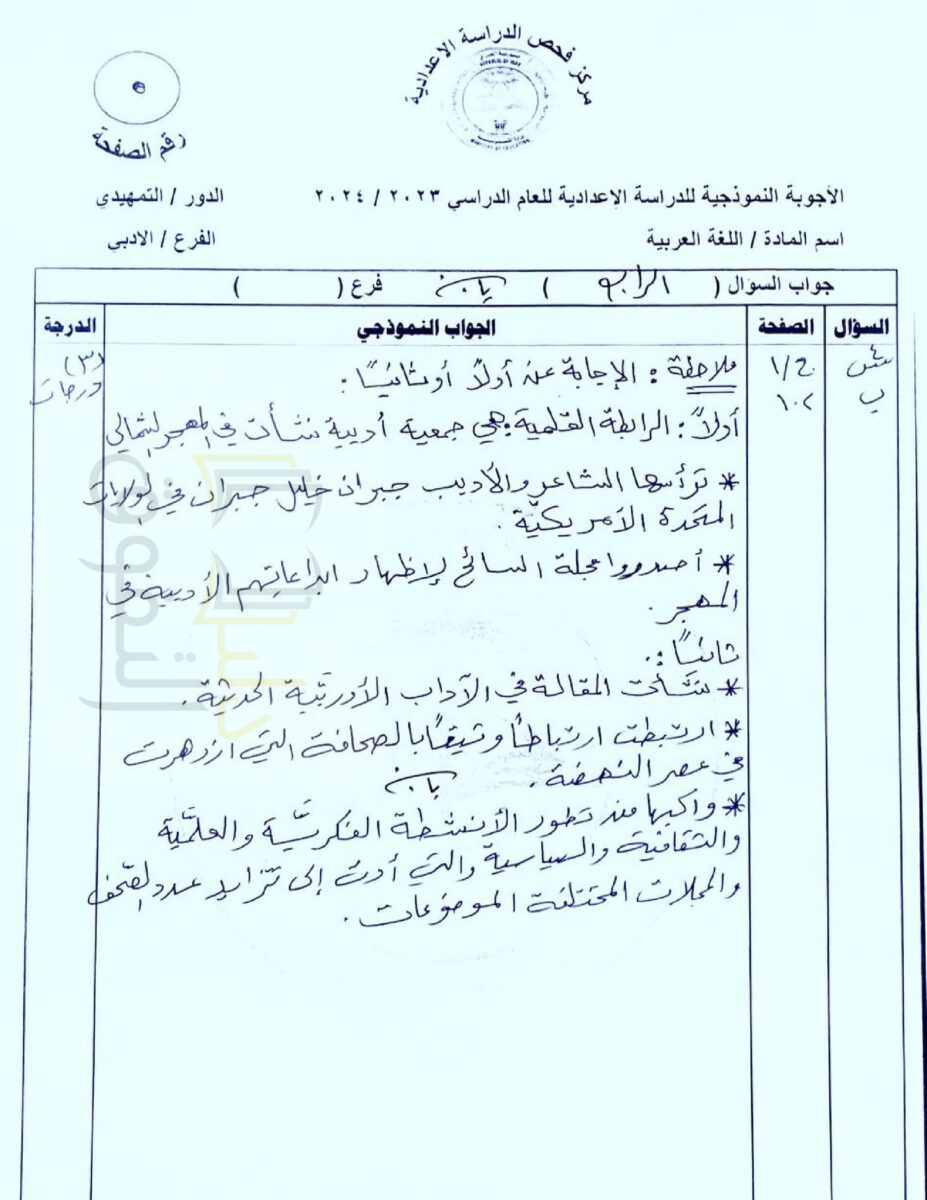 مركز فحص الدراسة الاعدادية
رقم الصفحة
الأجوبة النموذجية للدراسة الإعدادية للعام الدراسي ٢٠٢٣ / ٢٠٢٤
الدور / التمهيدي
اسم المادة / اللغة العربية
الفرع / الادبي
جواب السؤال ( الرابع ) فرع ( )
السؤال الصفحة الجواب النموذجي الدرجة
س٤ ج/١ ملاحظة : الإجابة عن أولاً أو ثانيًا : (٣)
ب ١٠٢ درجات
أولاً : الرابطة القلمية : هي جمعية أدبية نشأت في المهجر الشمالي
* ترأسها الشاعر والأديب جبران خليل جبران في الولايات
المتحدة الأمريكيّة .
* أصدروا مجلة السائح لإظهار ابداعاتهم الأدبية في
المهجر .
ثانيًا :
* نشأت المقالة في الآداب الأوربّية الحديثة .
* ارتبطت ارتباطًا وثيقًا بالصحافة التي ازدهرت
في عصر النهضة .
* واكبها منذ تطور الأنشطة الفكريّة والعلميّة
والثقافية والسياسية والتي أدت إلى تزايد عدد الصحف
والمجلات المختلفة الموضوعات .